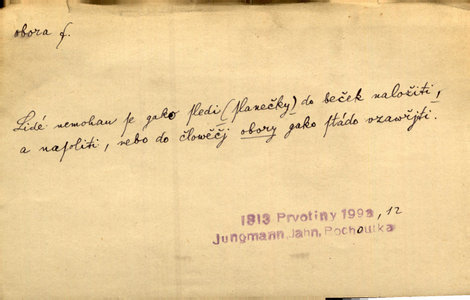 obora f.
Lidé nemohau se gako sledi (slanečky) do beček naložiti,
a nasoliti, nebo do člowěčj obory gako stádo ozawřjti.
1813 Prvotiny 199a, 12
Jungmann, Jahn, Pochoutka